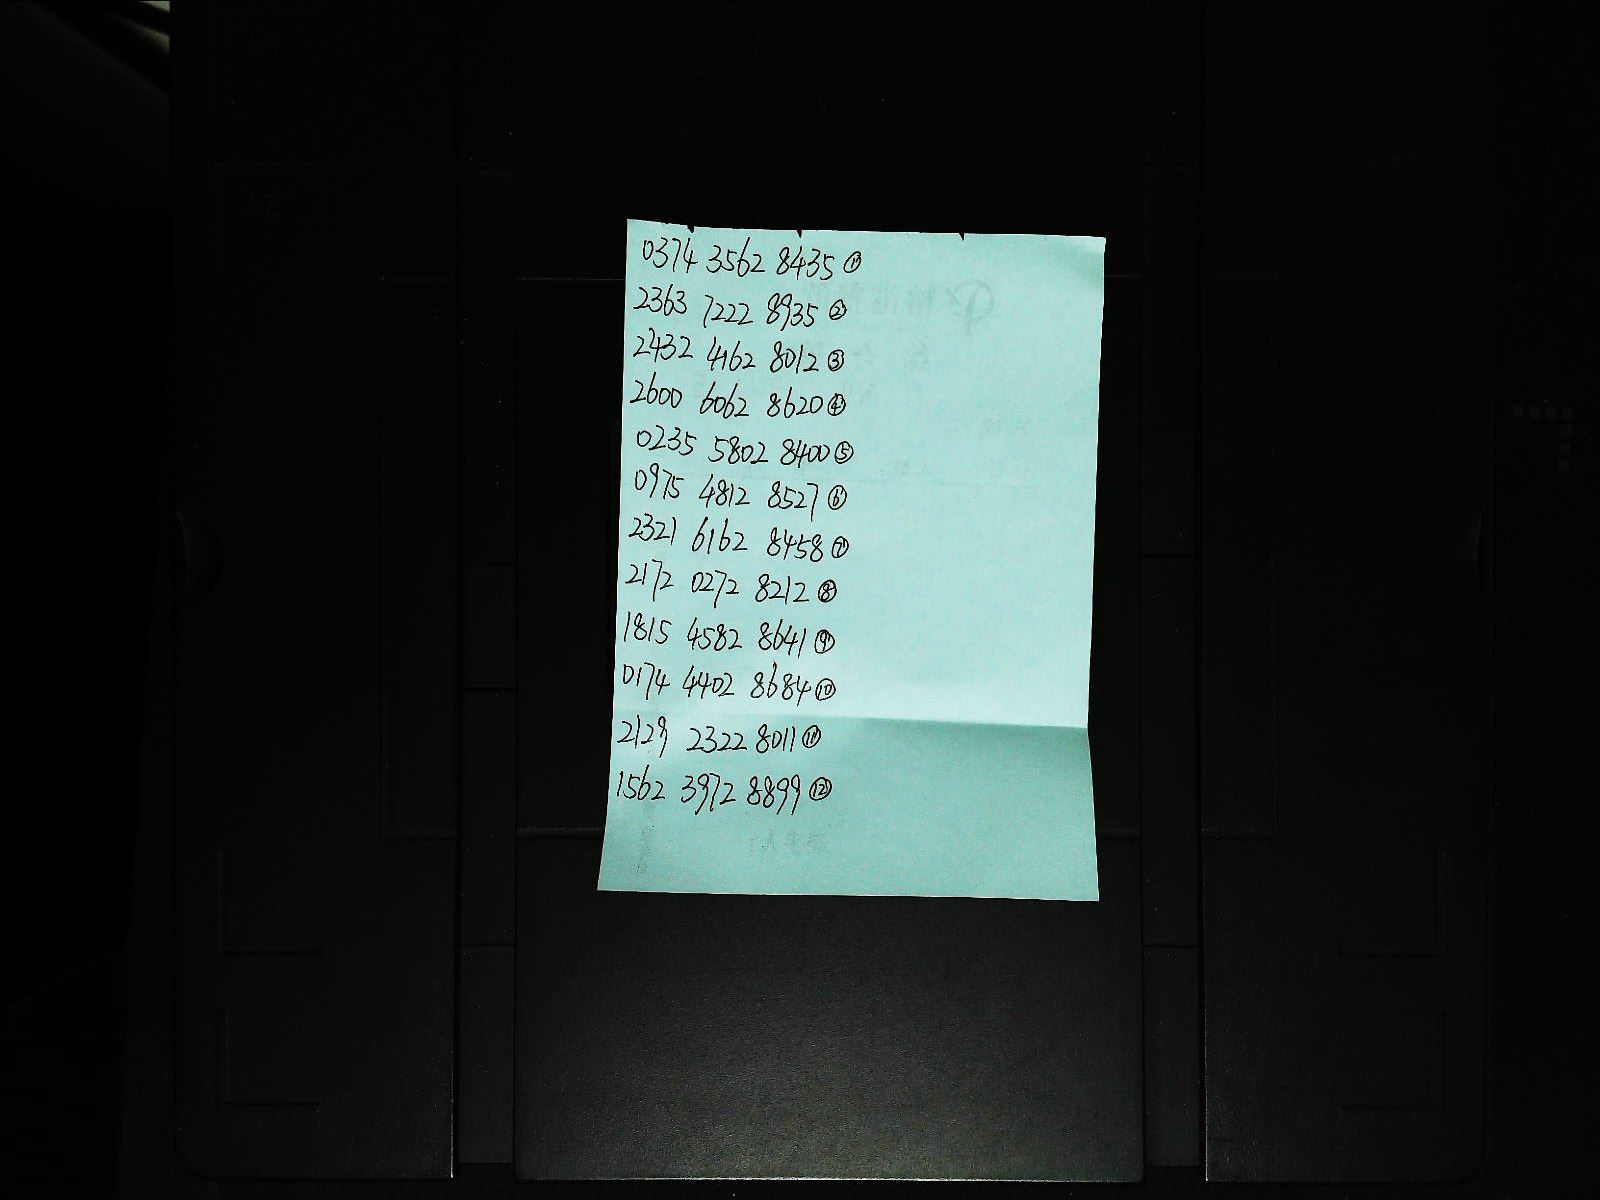 0374 3562 8435 ①
2363 7222 8935 ②
2432 4162 8012 ③
2600 6062 8620 ④
0235 5802 8400 ⑤
0975 4812 8527 ⑥
2321 6162 8458 ⑦
2172 0272 8212 ⑧
1815 4582 8641 ⑨
0174 4402 8684 ⑩
2129 2322 8011 ⑪
1562 3972 8899 ⑫